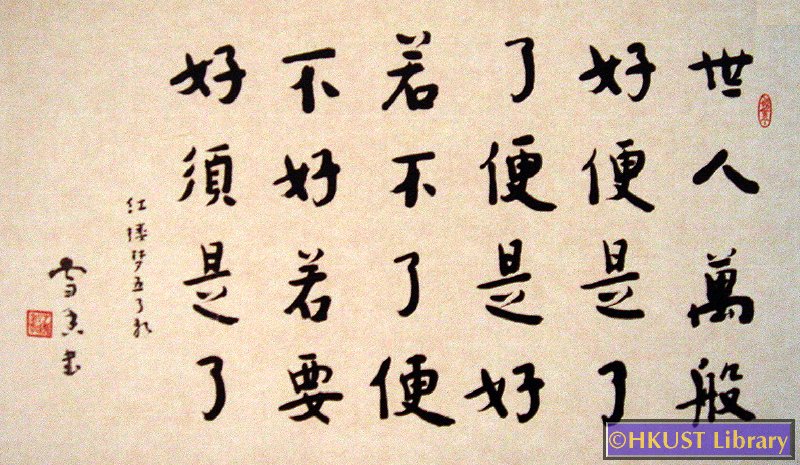 世人萬般
好便是了
了便是好
若不了便
不好若要
好須是了
红楼梦
書
©HKUST Library